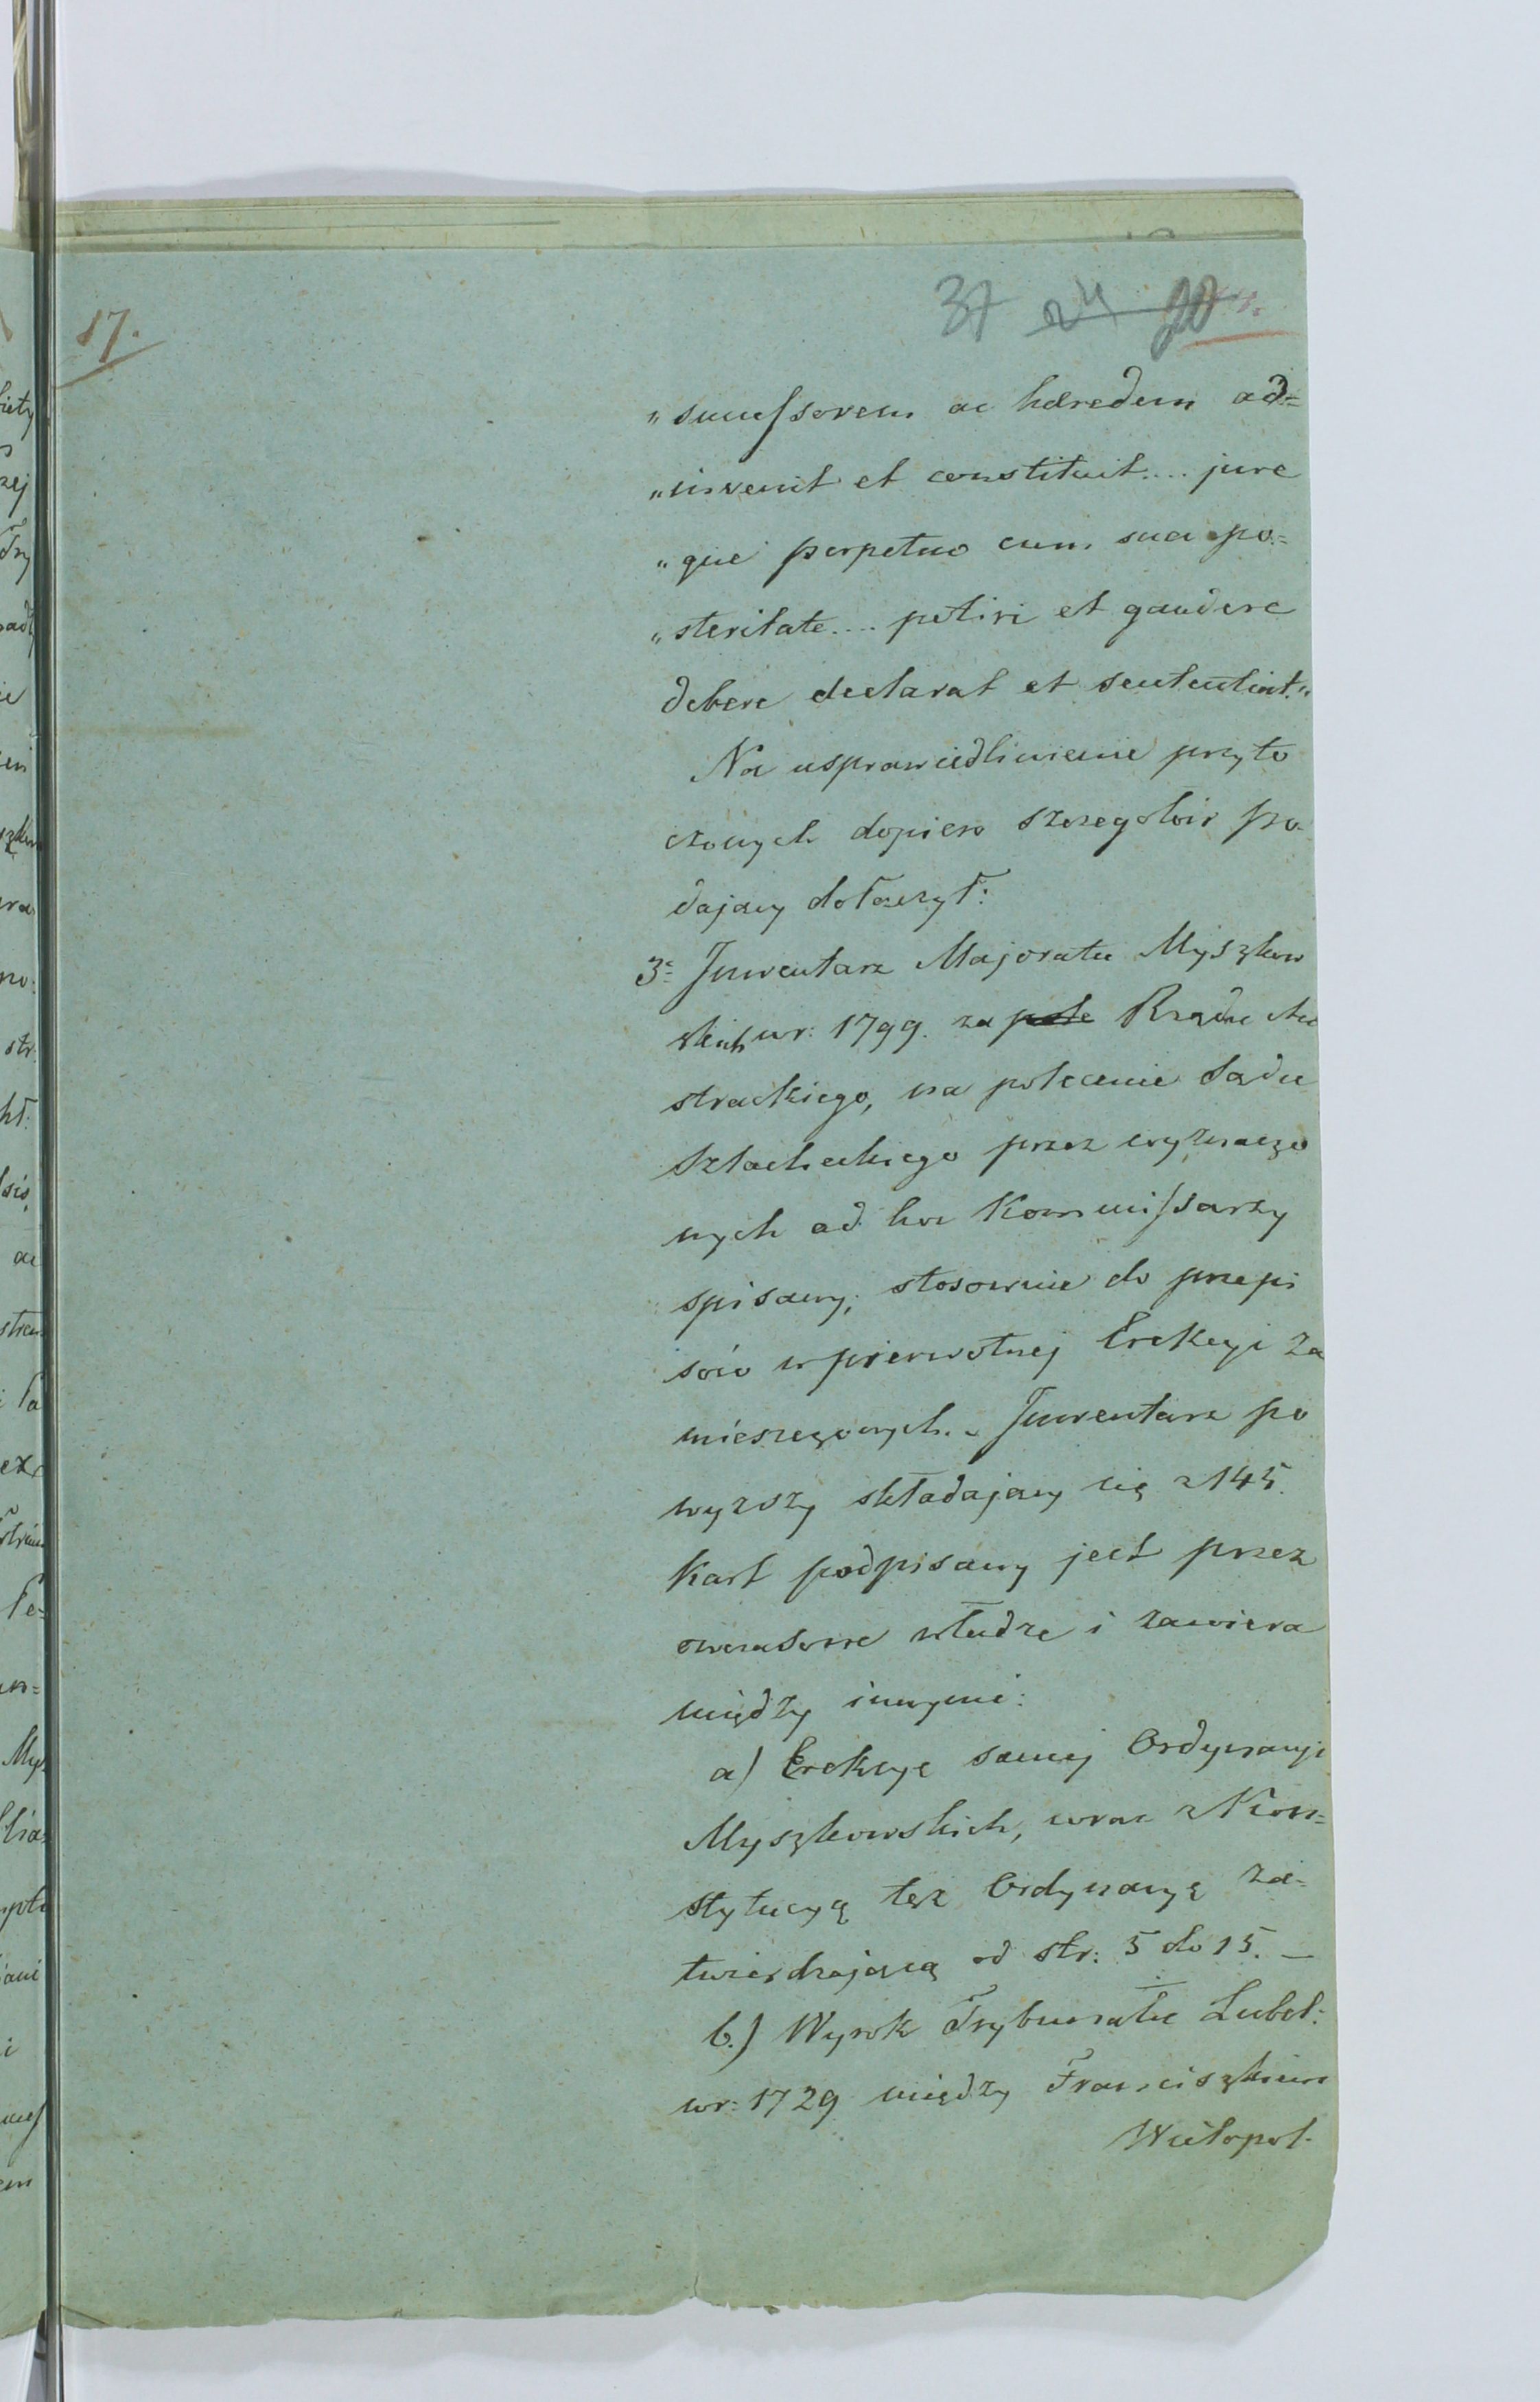 17.
37 24 20
„sucessorem ac hæredem ad=
„invenit et constituit.... jure
„que perpetuo cum sua po=
„steritate.... potiri et gaudere
debere declarat et sententiat."
Na usprawiedliwienie przyto
czonych dopiero szczegołów po-
dający dołączył:
3= Inwentarz Majoratu Myszkow
skich w r: 1799. za Rządu Au
stryackiego, na polecenie Sądu
Szlacheckiego przez wyznaczo
nych ad hoc Kommissarzy
spisany, stosownie do przepi
sów w pierwotnej Erekcyi za
mieszczonych. Inwentarz po
wyższy składający się z 145.
Kart podpisany jest przez
owczasowe władze i zawiera
między innymi:
a) Erekcye samej Ordynacyi
Myszkowskich, wraz z Kon=
stytucyą tęż Ordynacyę za=
twierdzającą od str: 5 do 15. —
b.) Wyrok Trybunału Lubel:
w r: 1729 między Franciszkiem
Wielopol-